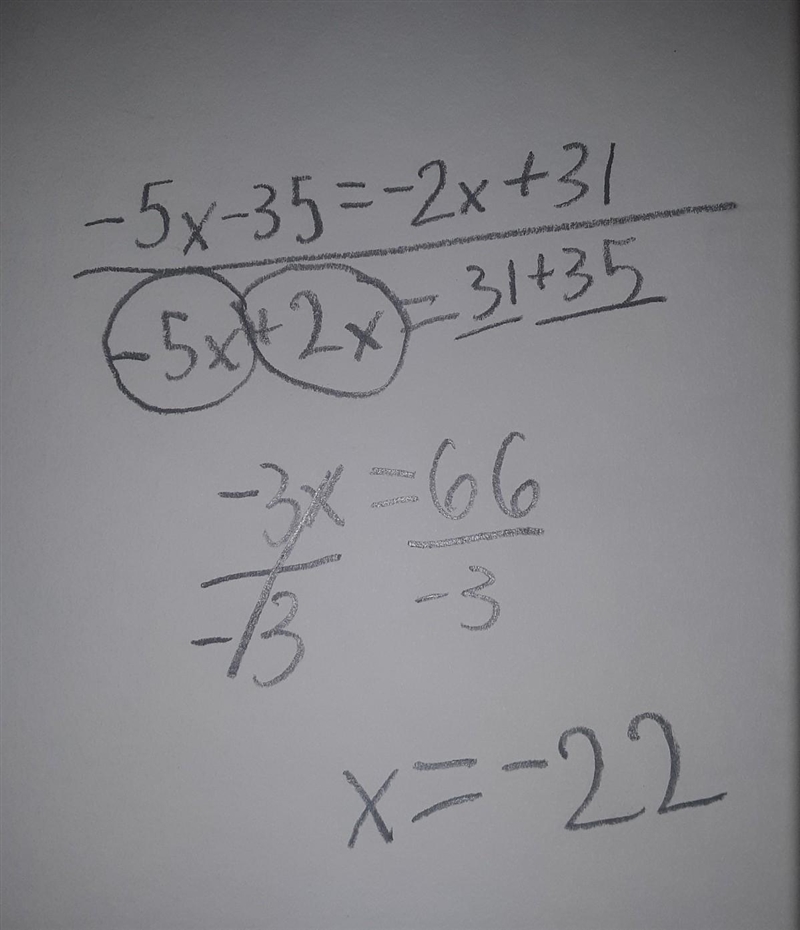 -5x-35=-2x+31
-5x+2x=31+35
-3x=66
-3 -3
x=-22